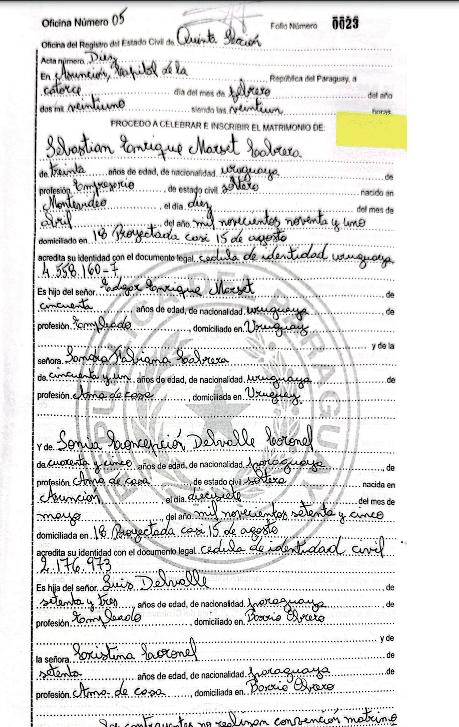 Oficina Número 05 Folio Número 0023
Oficina del Registro del Estado Civil de Quinta Sección
Acta número. Diez
En Asunción, Capital de la República del Paraguay, a
catorce día del mes de febrero del año
dos mil veintiuno siendo las veintiun horas
PROCEDO A CELEBRAR E INSCRIBIR EL MATRIMONIO DE:
Sebastian Enrique Marset Cabrera
de treinta años de edad, de nacionalidad. uruguaya de
profesión Empresario, de estado civil soltero nacido en
Montevideo, el día. diez del mes de
abril del año. mil novecientos noventa y uno
domiciliado en 18 Proyectada casi 15 de agosto
acredita su identidad con el documento legal. cedula de identidad uruguaya
4.558.160-7
Es hijo del señor. Edgar Enrique Marset de
cincuenta años de edad, de nacionalidad. uruguaya de
profesión. Empleado, domiciliado en. Uruguay
y de la
señora. Sandra Fabiana Cabrera
de cincuenta y un años de edad, de nacionalidad. uruguaya de
profesión. Ama de casa, domiciliada en. Uruguay
Y de. Sonia Concepción Delvalle Coronel
de cuarenta y cinco años de edad, de nacionalidad. paraguaya, de
profesión Ama de casa de estado civil soltera nacida en
Asunción el día. diecisiete del mes de
mayo del año. mil novecientos setenta y cinco
domiciliada en. 18 Proyectada casi 15 de agosto
acredita su identidad con el documento legal. cedula de identidad civil
2.176.973
Es hija del señor. Luis Delvalle de
setenta y tres, años de edad, de nacionalidad. paraguaya de
profesión. Empleado domiciliado en. Barrio Obrero
y de
la señora. Cristina Coronel
setenta años de edad, de nacionalidad. paraguaya de
profesión. Ama de casa, domiciliada en. Barrio Obrero
Los contrayentes no realizan convención matrimo